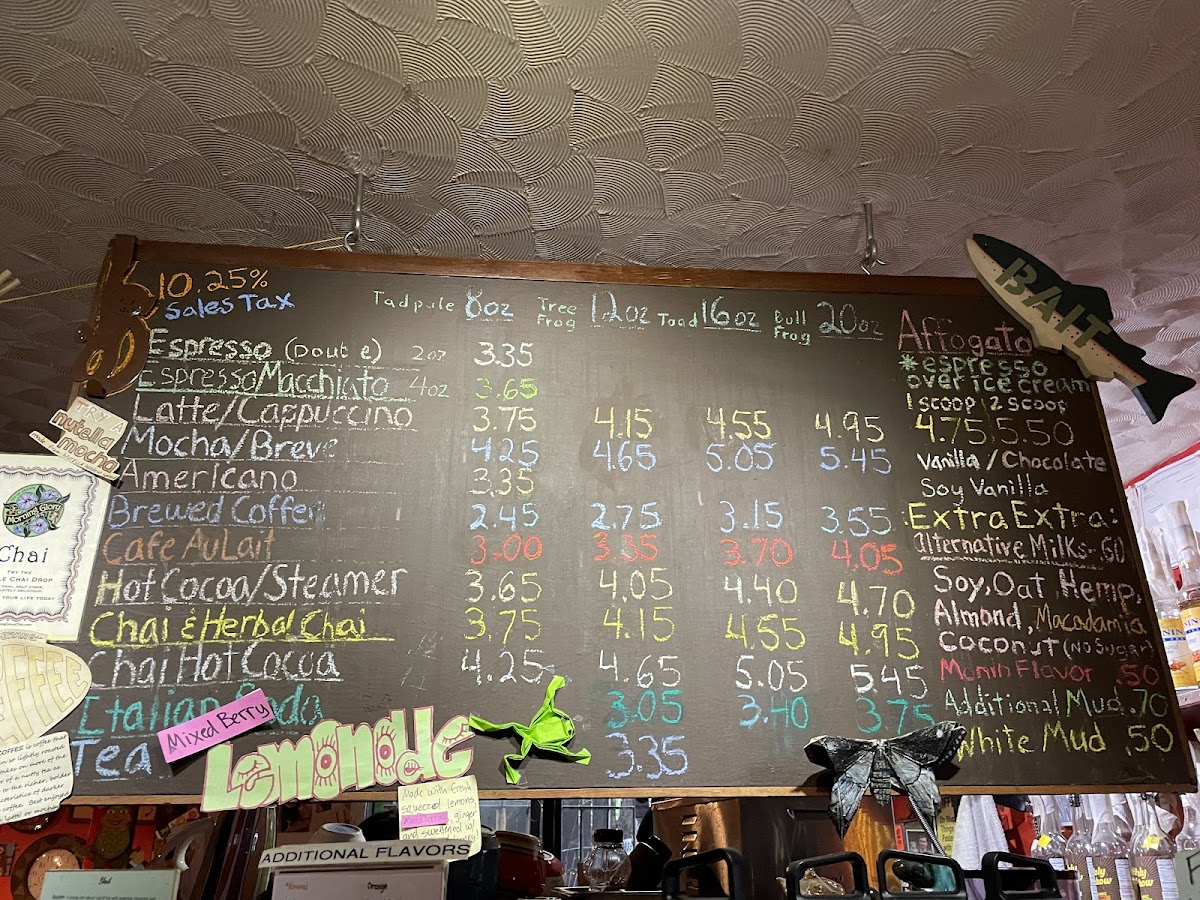 10.25%
Sales Tax
Tadpole 8oz Tree Frog 12oz Toad 16oz Bull Frog 20oz
Espresso (Double) 2oz 3.35
Espresso Macchiato 4oz 3.65
Latte/Cappuccino 3.75 4.15 4.55 4.95
Mocha/Breve 4.25 4.65 5.05 5.45
Americano 3.35
Brewed Coffee 2.45 2.75 3.15 3.55
Cafe Au Lait 3.00 3.35 3.70 4.05
Hot Cocoa/Steamer 3.65 4.05 4.40 4.70
Chai & Herbal Chai 3.75 4.15 4.55 4.95
Chai Hot Cocoa 4.25 4.65 5.05 5.45
Italian Soda 3.05 3.40 3.75
Tea 3.35
Affogato
*espresso
over ice cream
1 scoop 2 scoop
4.75 5.50
Vanilla/Chocolate
Soy Vanilla
Extra Extra:
Alternative Milks .60
Soy, Oat, Hemp,
Almond, Macadamia
Coconut (No Sugar)
Monin Flavor .50
Additional Mud .70
White Mud .50
BAIT
TRY A
nutella
mocha
Morning Glory
Chai
TRY THE
CHAI DROP
YOUR LIFE TODAY
Mixed Berry
Lemonade
Made with fresh
squeezed lemons,
ginger
and sweetened w/
ADDITIONAL FLAVORS
Orange